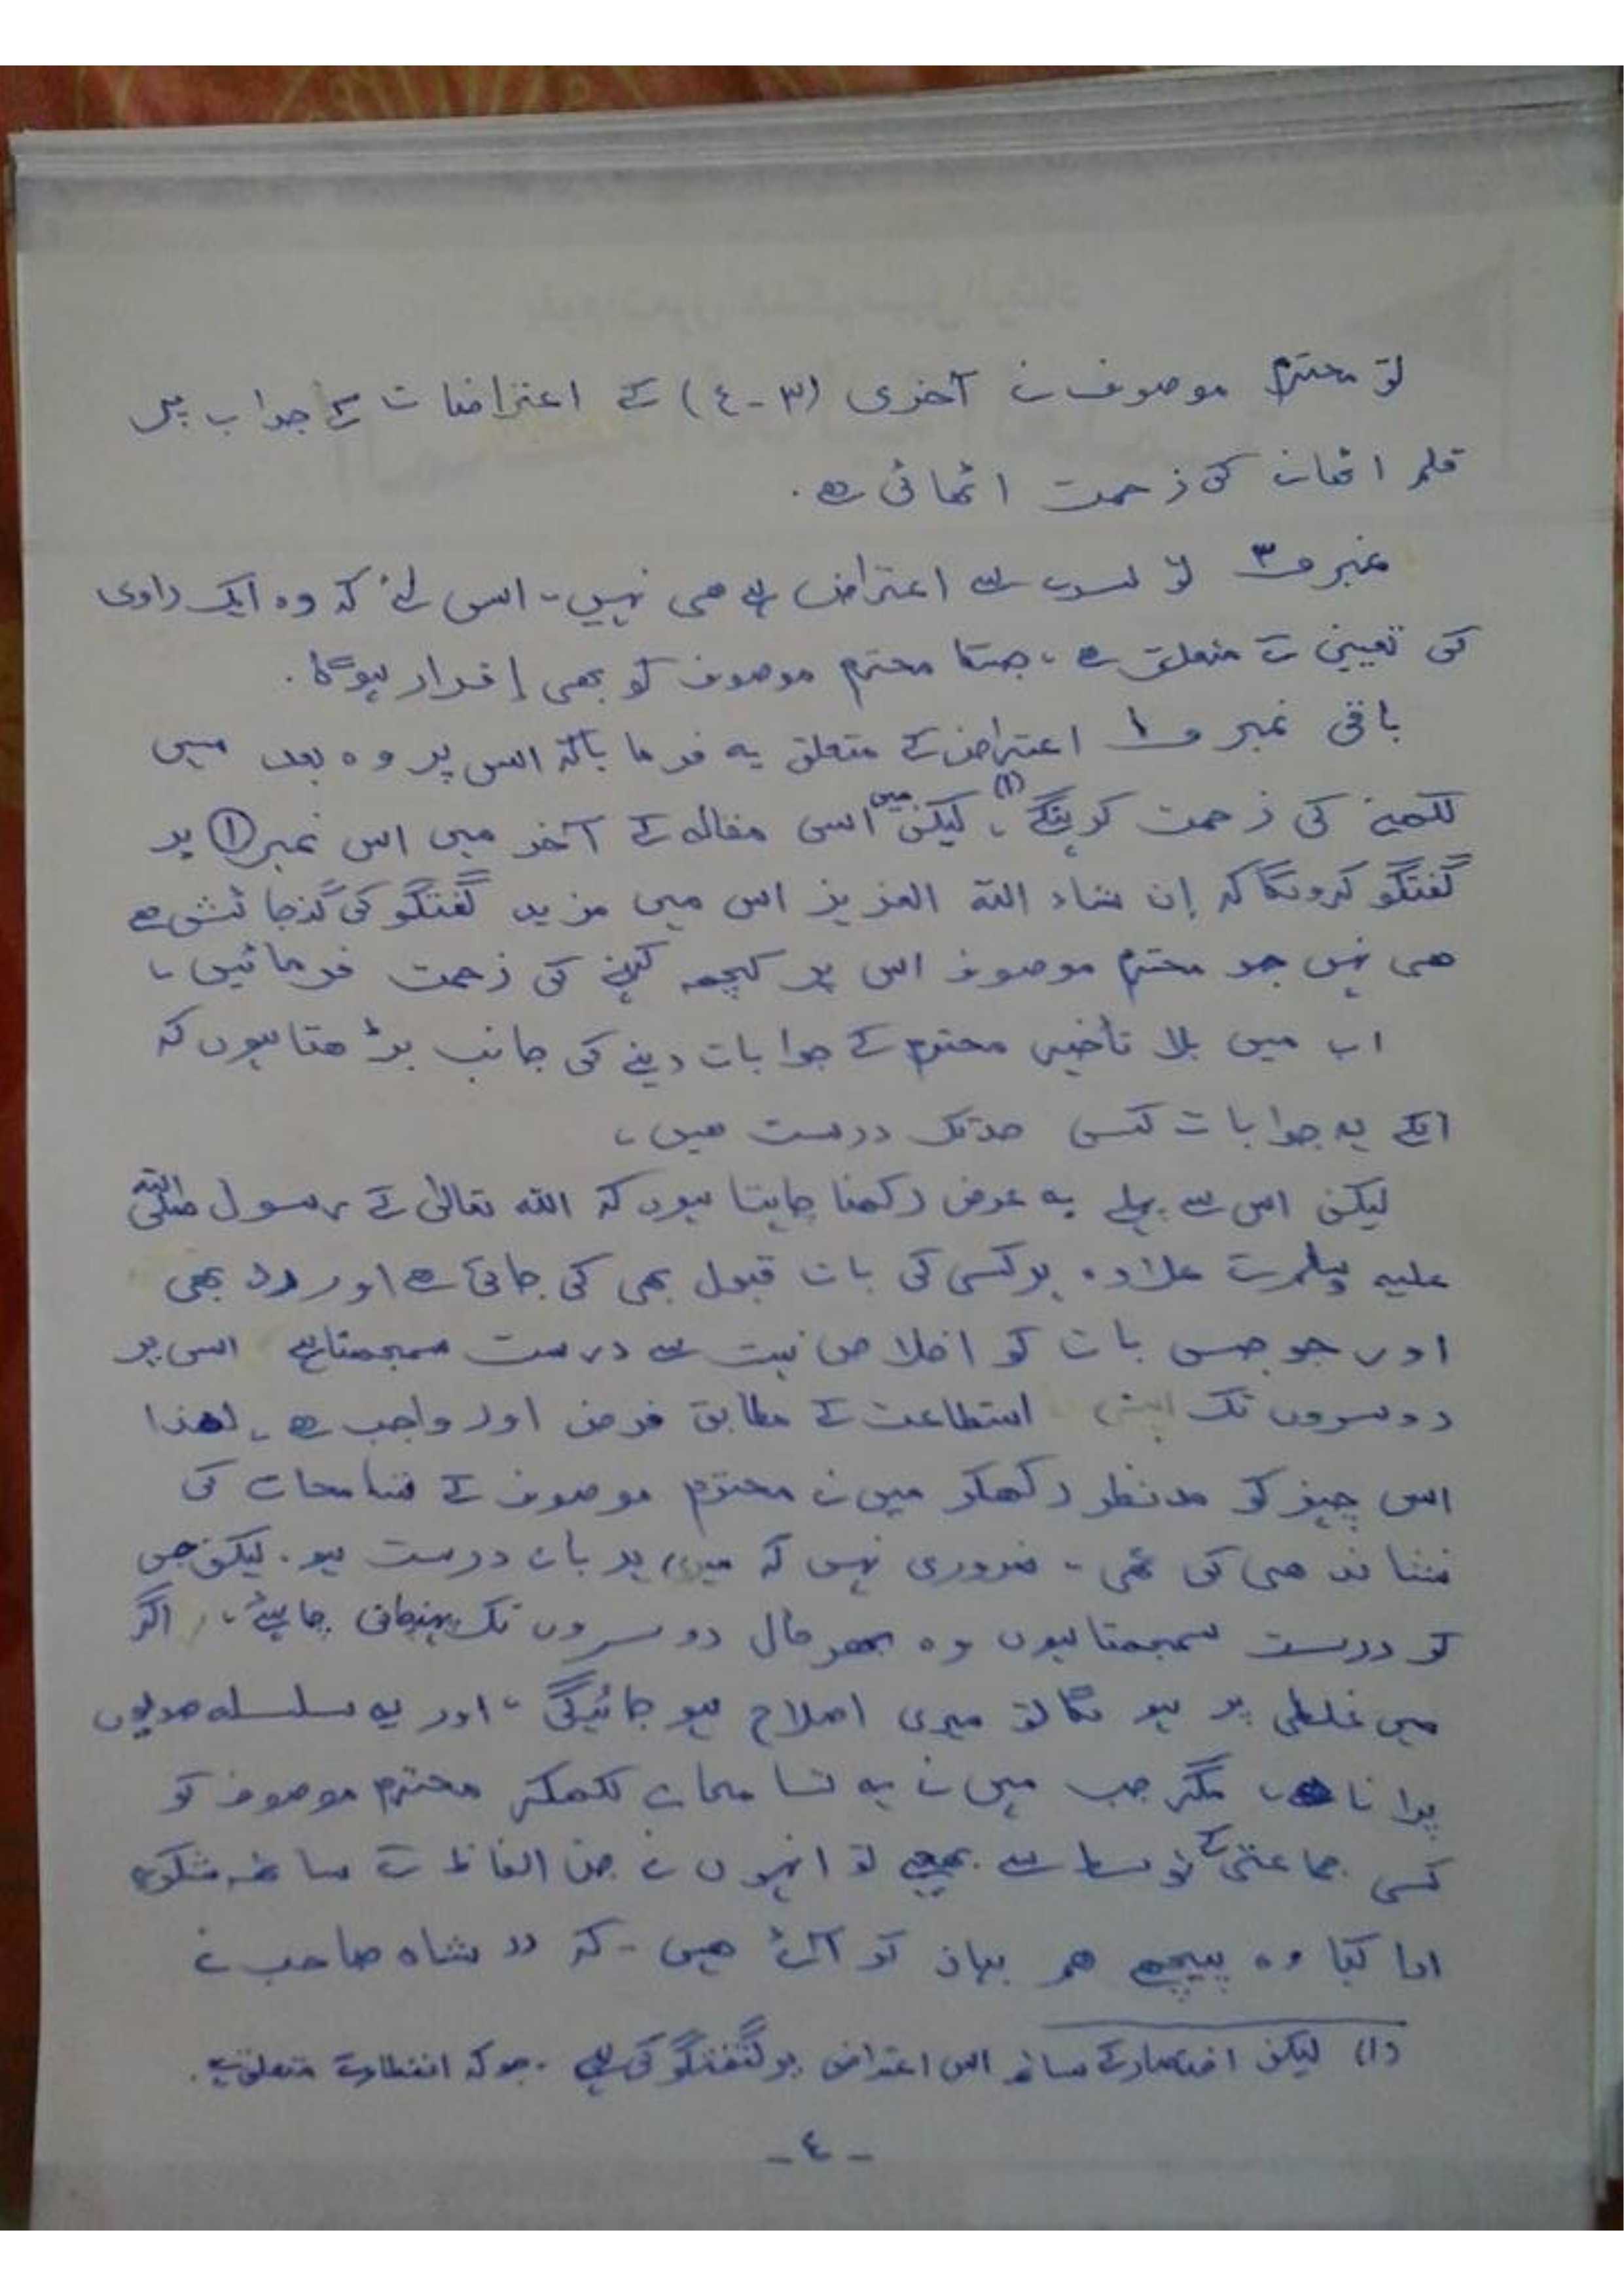 تو محترم موصوف نے آخری (۳-٤) کے اعتراضات کے جواب میں
قلم اٹھانے کی زحمت اٹھائی ہے۔
نمبر ۳ تو سرے سے اعتراض ہے ھی نہیں، اس لئے کہ وہ ایک راوی
کی تعیین سے متعلق ہے، جسکا محترم موصوف کو بھی إقرار ہوگا۔
باقی نمبر ۱ اعتراض کے متعلق یہ فرمایا کہ اس پر وہ بعد میں
لکھنے کی زحمت کرینگے (۱)، لیکن میں اسی مقالہ کے آخر میں اس نمبر ① پر
گفتگو کرونگا کہ إن شاء اللہ العزیز اس میں مزید گفتگو کی گنجائش ھے
ھی نہیں جو محترم موصوف اس پر کچھ کہنے کی زحمت فرمائیں،
اب میں بلا تأخیر محترم کے جوابات دینے کی جانب بڑھتا ہوں کہ
انکے یہ جوابات کس حد تک درست ھیں،
لیکن اس سے پہلے یہ عرض رکھنا چاہتا ہوں کہ اللہ تعالیٰ کے رسول صلی اللہ
علیہ وسلم کے علاوہ ہر کسی کی بات قبول بھی کی جاتی ھے اور رد بھی
اور جو جس بات کو اخلاص نیت سے درست سمجھتا ہے اسی پر
دوسروں تک اپنی استطاعت کے مطابق فرض اور واجب ھے، لھذا
اس چیز کو مدنظر رکھکر میں نے محترم موصوف کے تسامحات کی
نشاندھی کی تھی، ضروری نہیں کہ میری ہر بات درست ہو۔ لیکن جس
کو درست سمجھتا ہوں وہ بھرحال دوسروں تک پہنچانی چاہیئے، اگر
میں غلطی پر ہونگا تو میری اصلاح ہو جائیگی، اور یہ سلسلہ صدیوں
پرانا ھے، مگر جب میں نے یہ تسامحات لکھکر محترم موصوف کو
کسی جماعتی کے توسط سے بھیجے تو انہوں نے جن الفاظ کے ساتھ شکریہ
ادا کیا وہ پیچھے ھم بیان کر آئے ھیں - کہ "شاہ صاحب نے
(۱) لیکن اختصار کے ساتھ اس اعتراض پر گفتگو کی ہے، جو کہ انقطاع سے متعلق ہے۔
- ٤ -